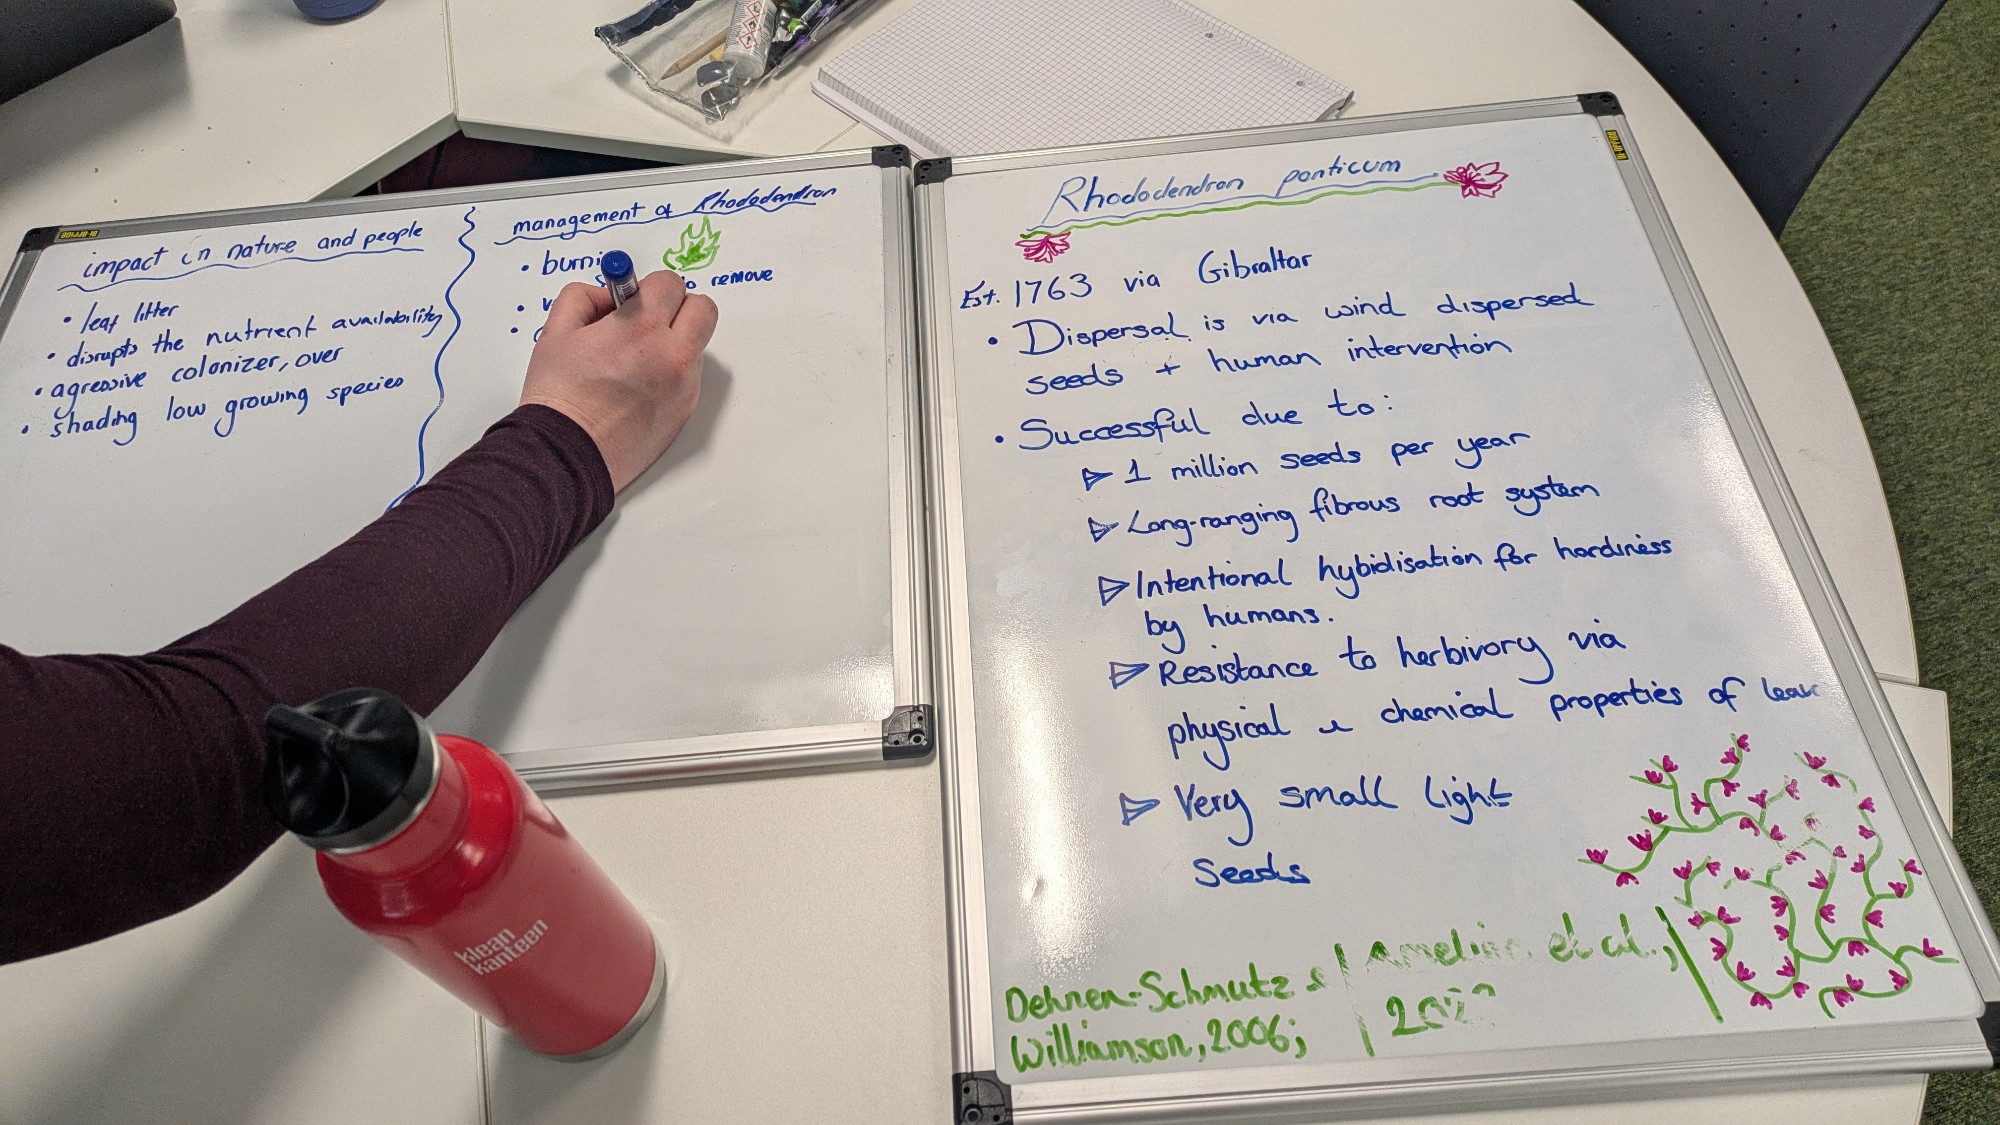 impact in nature and people
• leaf litter
• disrupts the nutrient availability
• agressive colonizer, over
• shading low growing species
management of Rhododendron
• burni
remove
Rhododendron ponticum
Est. 1763 via Gibraltar
• Dispersal is via wind dispersed
seeds + human intervention
• Successful due to:
1 million seeds per year
Long-ranging fibrous root system
Intentional hybidisation for hardiness
by humans.
Resistance to herbivory via
physical & chemical properties of
Very small light
seeds
Dehnen-Schmutz &
Williamson, 2006;
et al.,
klean
kanteen